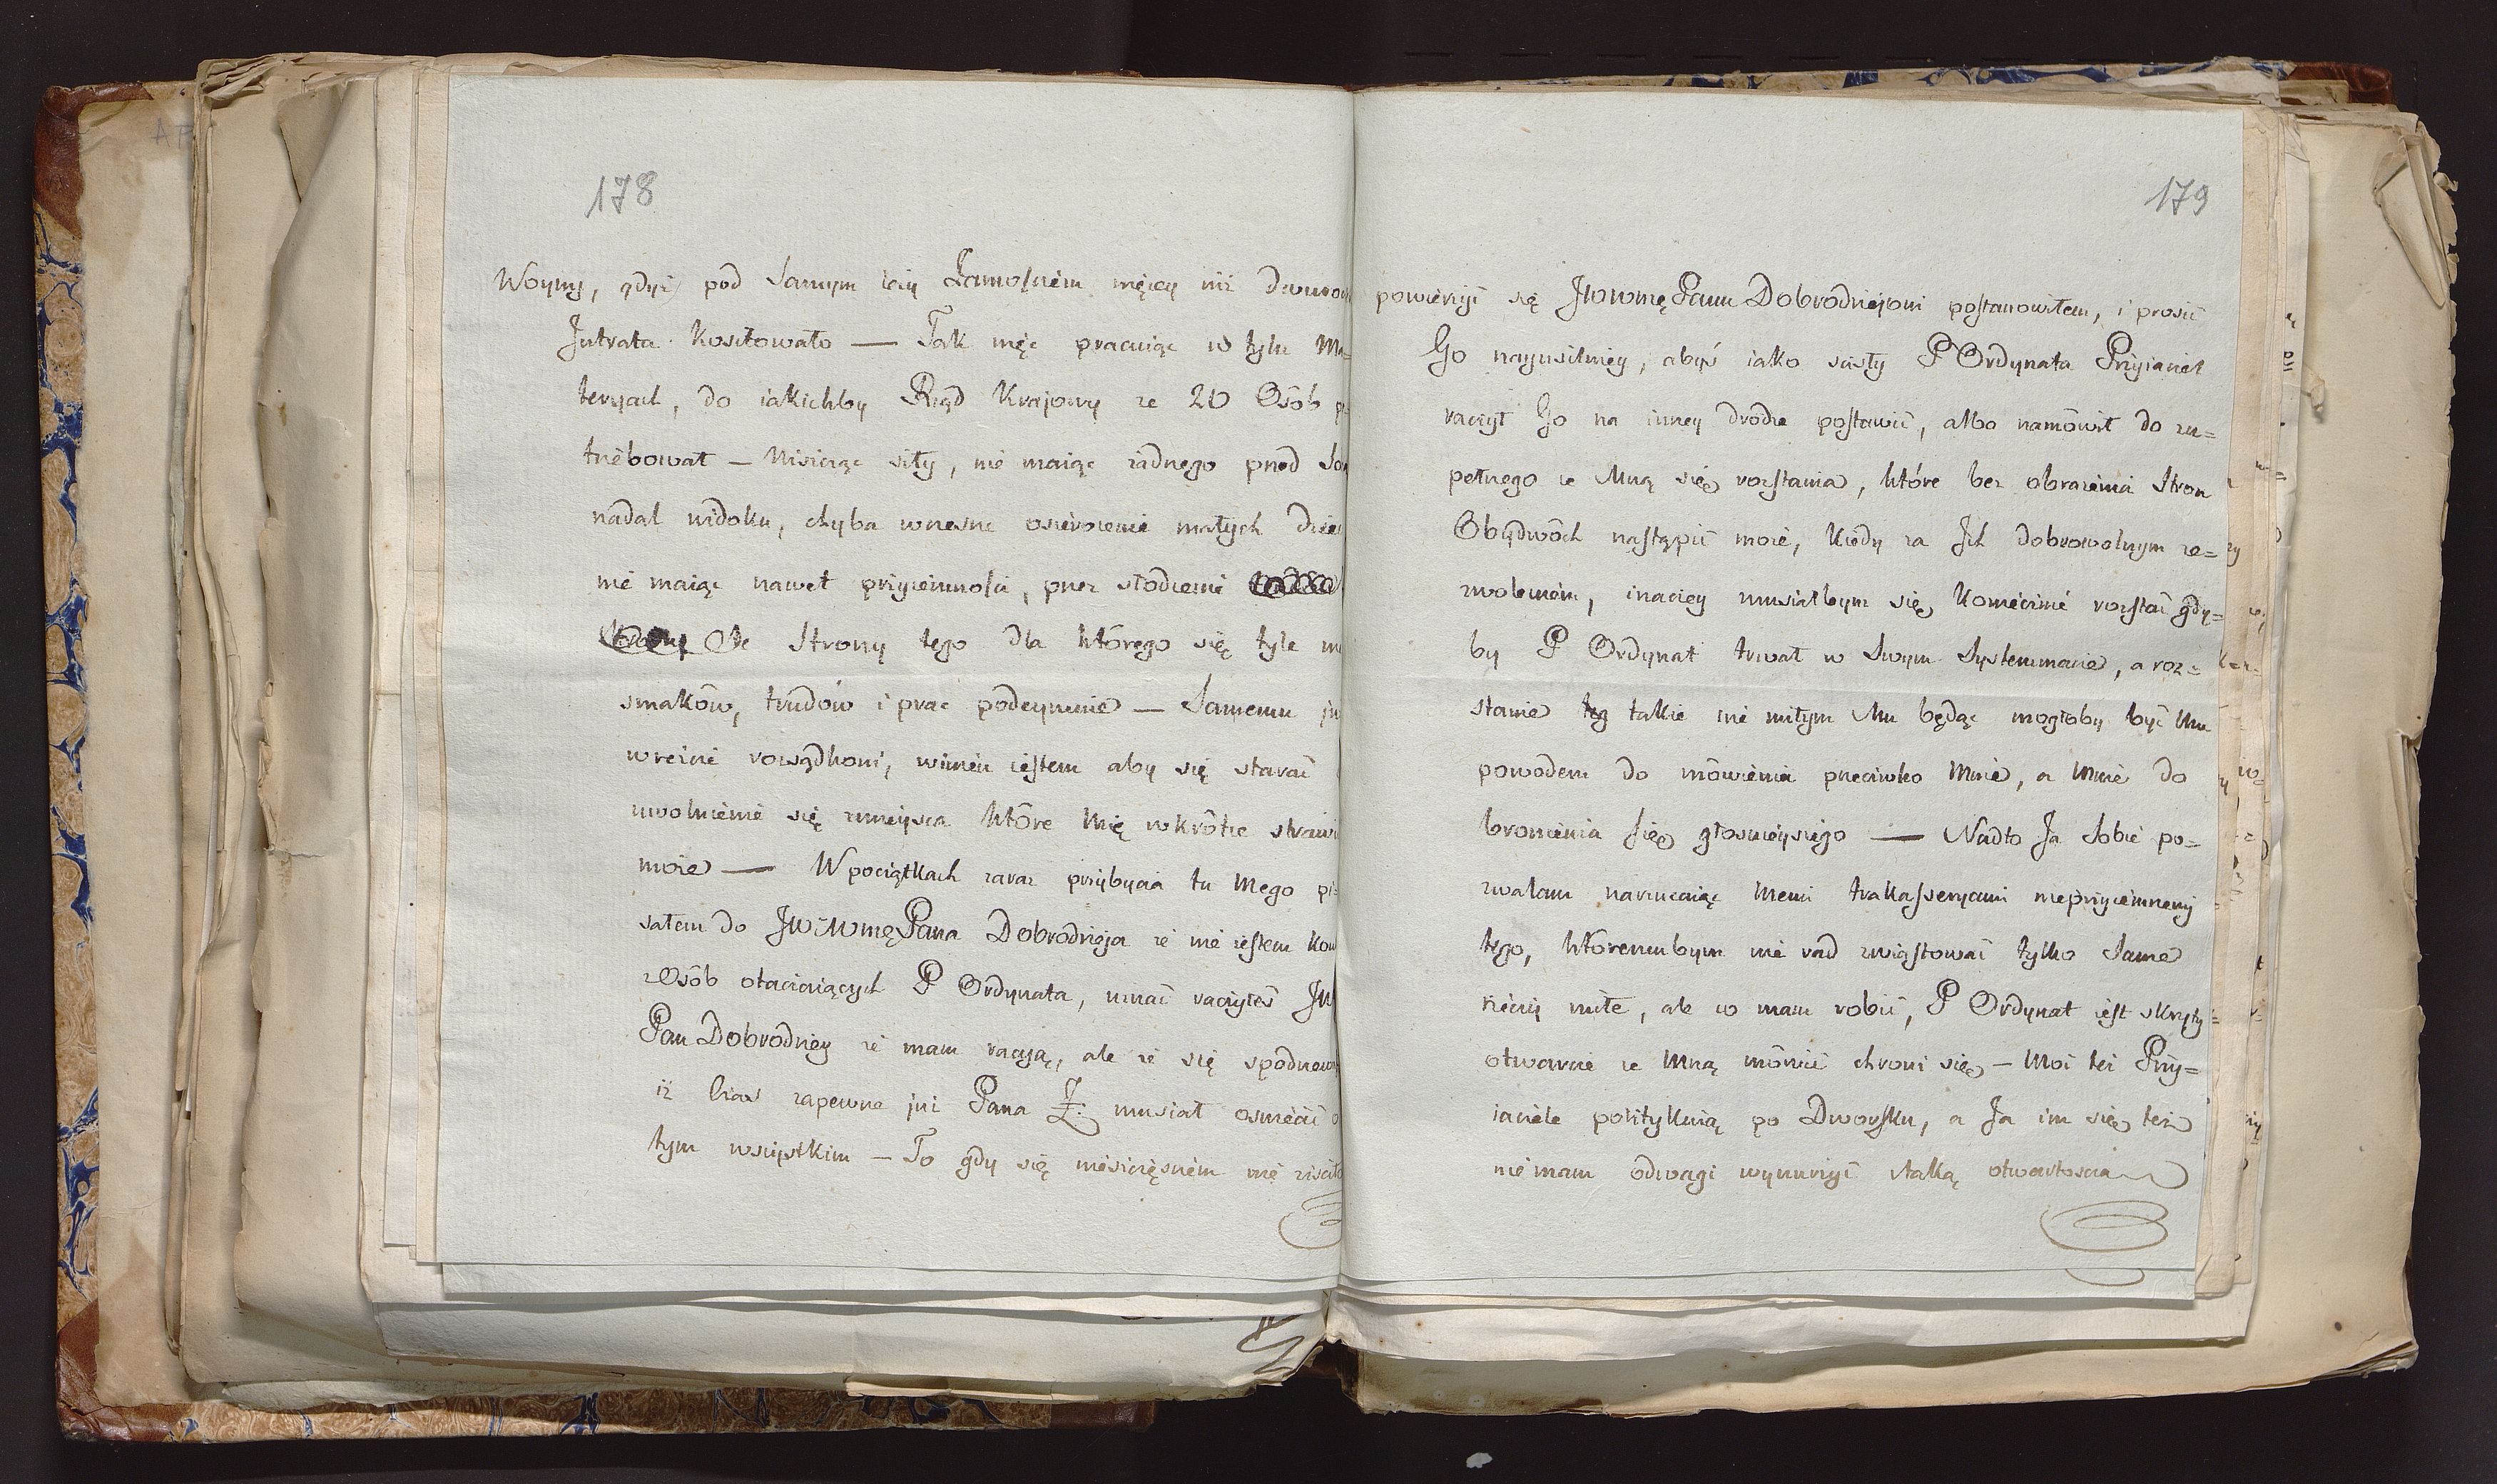 178
Woyny, gdyż pod samym icły Zamościem więcey niż dwuro
Intrata kosztowało — Tak więc pracuiąc w tylu Ma=
teryach, do iakichby Rząd Krajowy ze 20 Osób p
trzebował — Niszcząc siły, nie maiąc żadnego przed So
nadal widoku, chyba wczesne osierocenie małych dzie
nie maiąc nawet przyiemności, przez słodzenie
Ze Strony tego dla którego się tyle nie
smaków, trudów i prac podeymuie — Samemu ju
wreście rozsądkowi, winien iestem aby się starać
uwolnienie się zmieysca które Mię wkrótce strawi
może — W początkach zaraz przybycia tu Mego pi=
sałem do JWWmę Pana Dobrodzieja że nie iestem kon
z Osób otaczaiących P Ordynata, uznać raczyłeś JW
Pan Dobrodziey że mam racyą, ale że się spodziewa
iż Czas zapewne już Pana Z: musiał oświecić o
tym wszystkim — To gdy się nieszczęściem nie ziściło
179
powierzyć się JWWmę Panu Dobrodziejowi postanowiłem, i prosić
Go nayusilniey, abyś iako ścisły P Ordynata Przyiaciel
raczył Go na inney drodze postawić, albo namówił do zu=
pełnego ze Mną się rozstania, które bez obrażenia Stron
Obydwóch nastąpić może, kiedy za Ich dobrowolnym ze=
zwoleniem, inaczey musiałbym się koniecznie rozstać gdy=
by P Ordynat trwał w Swym Systemmacie, a roz=
stanie teg takie nie miłym Mu będąc mogłoby być Mu
powodem do mówienia przeciwko Mnie, a Mnie do
bronienia się głośnieyszego — Nadto Ja Sobie po=
zwalam narzucaiąc Memi trakasseryami nieprzyiemnemi
tego, któremubym nie rad zwiastować tylko Same
rzeczy miłe, ale co mam robić, P Ordynat iest skryty
otwarcie ze Mną mówić chroni się — Moi też Przy=
iaciele politykuią po Dworsku, a Ja im się też
nie mam odwagi wynurzyć ztaką otwartością